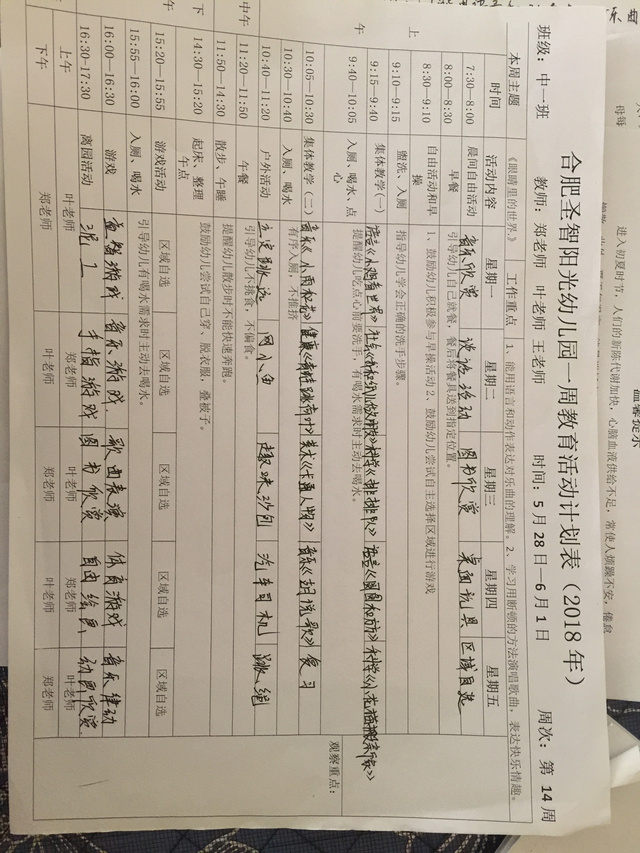 合肥圣智阳光幼儿园一周教育活动计划表（2018 年）
班级：中一班 教师：郑老师 叶老师 王老师 时间：5 月 28 日—6 月 1 日 周次：第 14 周
本周主题 《眼睛里的世界》 工作重点 1、能用语言和动作表达对乐曲的理解。2、学习用断顿的方法演唱歌曲，表达快乐情趣。
时间 活动内容 星期一 星期二 星期三 星期四 星期五
上午
7:30—8:00 晨间自由活动 音乐欣赏 谈话活动 图书欣赏 桌面玩具 区域自选
8:00—8:30 早餐 引导幼儿自己就餐，餐后将餐具送到指定位置。
8:30—9:10 自由活动和早操 1、鼓励幼儿积极参与早操活动 2、鼓励幼儿尝试自主选择区域进行游戏
9:10—9:15 盥洗、入厕 指导幼儿学会正确的洗手步骤。
9:15—9:40 集体教学(一) 语言《小鸡看世界》 科学《排排队》
9:40—10:05 入厕、喝水、点心 提醒幼儿吃点心前要洗手，有喝水需求时主动去喝水。
10:05—10:30 集体教学(二) 音乐《小雨和花》 美术《卡通人物》 复习
10:30—10:40 入厕、喝水 有序入厕，不推挤
10:40—11:20 户外活动 立定跳远 网小鱼 趣味沙包 汽车司机 跳绳
中午
11:20—11:50 午餐 引导幼儿不挑食，不偏食。
11:50—14:30 散步、午睡 提醒幼儿散步时不能快速奔跑。
下午
14:30—15:20 起床、整理午点 鼓励幼儿尝试自己穿、脱衣服，叠被子。
15:20—15:55 游戏活动 区域自选 区域自选 区域自选 区域自选 区域自选
15:55—16:00 入厕、喝水 引导幼儿有喝水需求时主动去喝水。
16:00—16:30 游戏 益智游戏 音乐游戏 歌曲表演 体育游戏 音乐律动
16:30—17:30 离园活动 泥工 手指游戏 图书欣赏 自由绘画 动画欣赏
上午 叶老师 郑老师 叶老师 郑老师 叶老师
下午 郑老师 叶老师 郑老师 叶老师 郑老师
观察重点：
温馨提示
进入初夏时节，人们的新陈代谢加快，心脑血液供给不足，常使人烦躁不安，倦怠